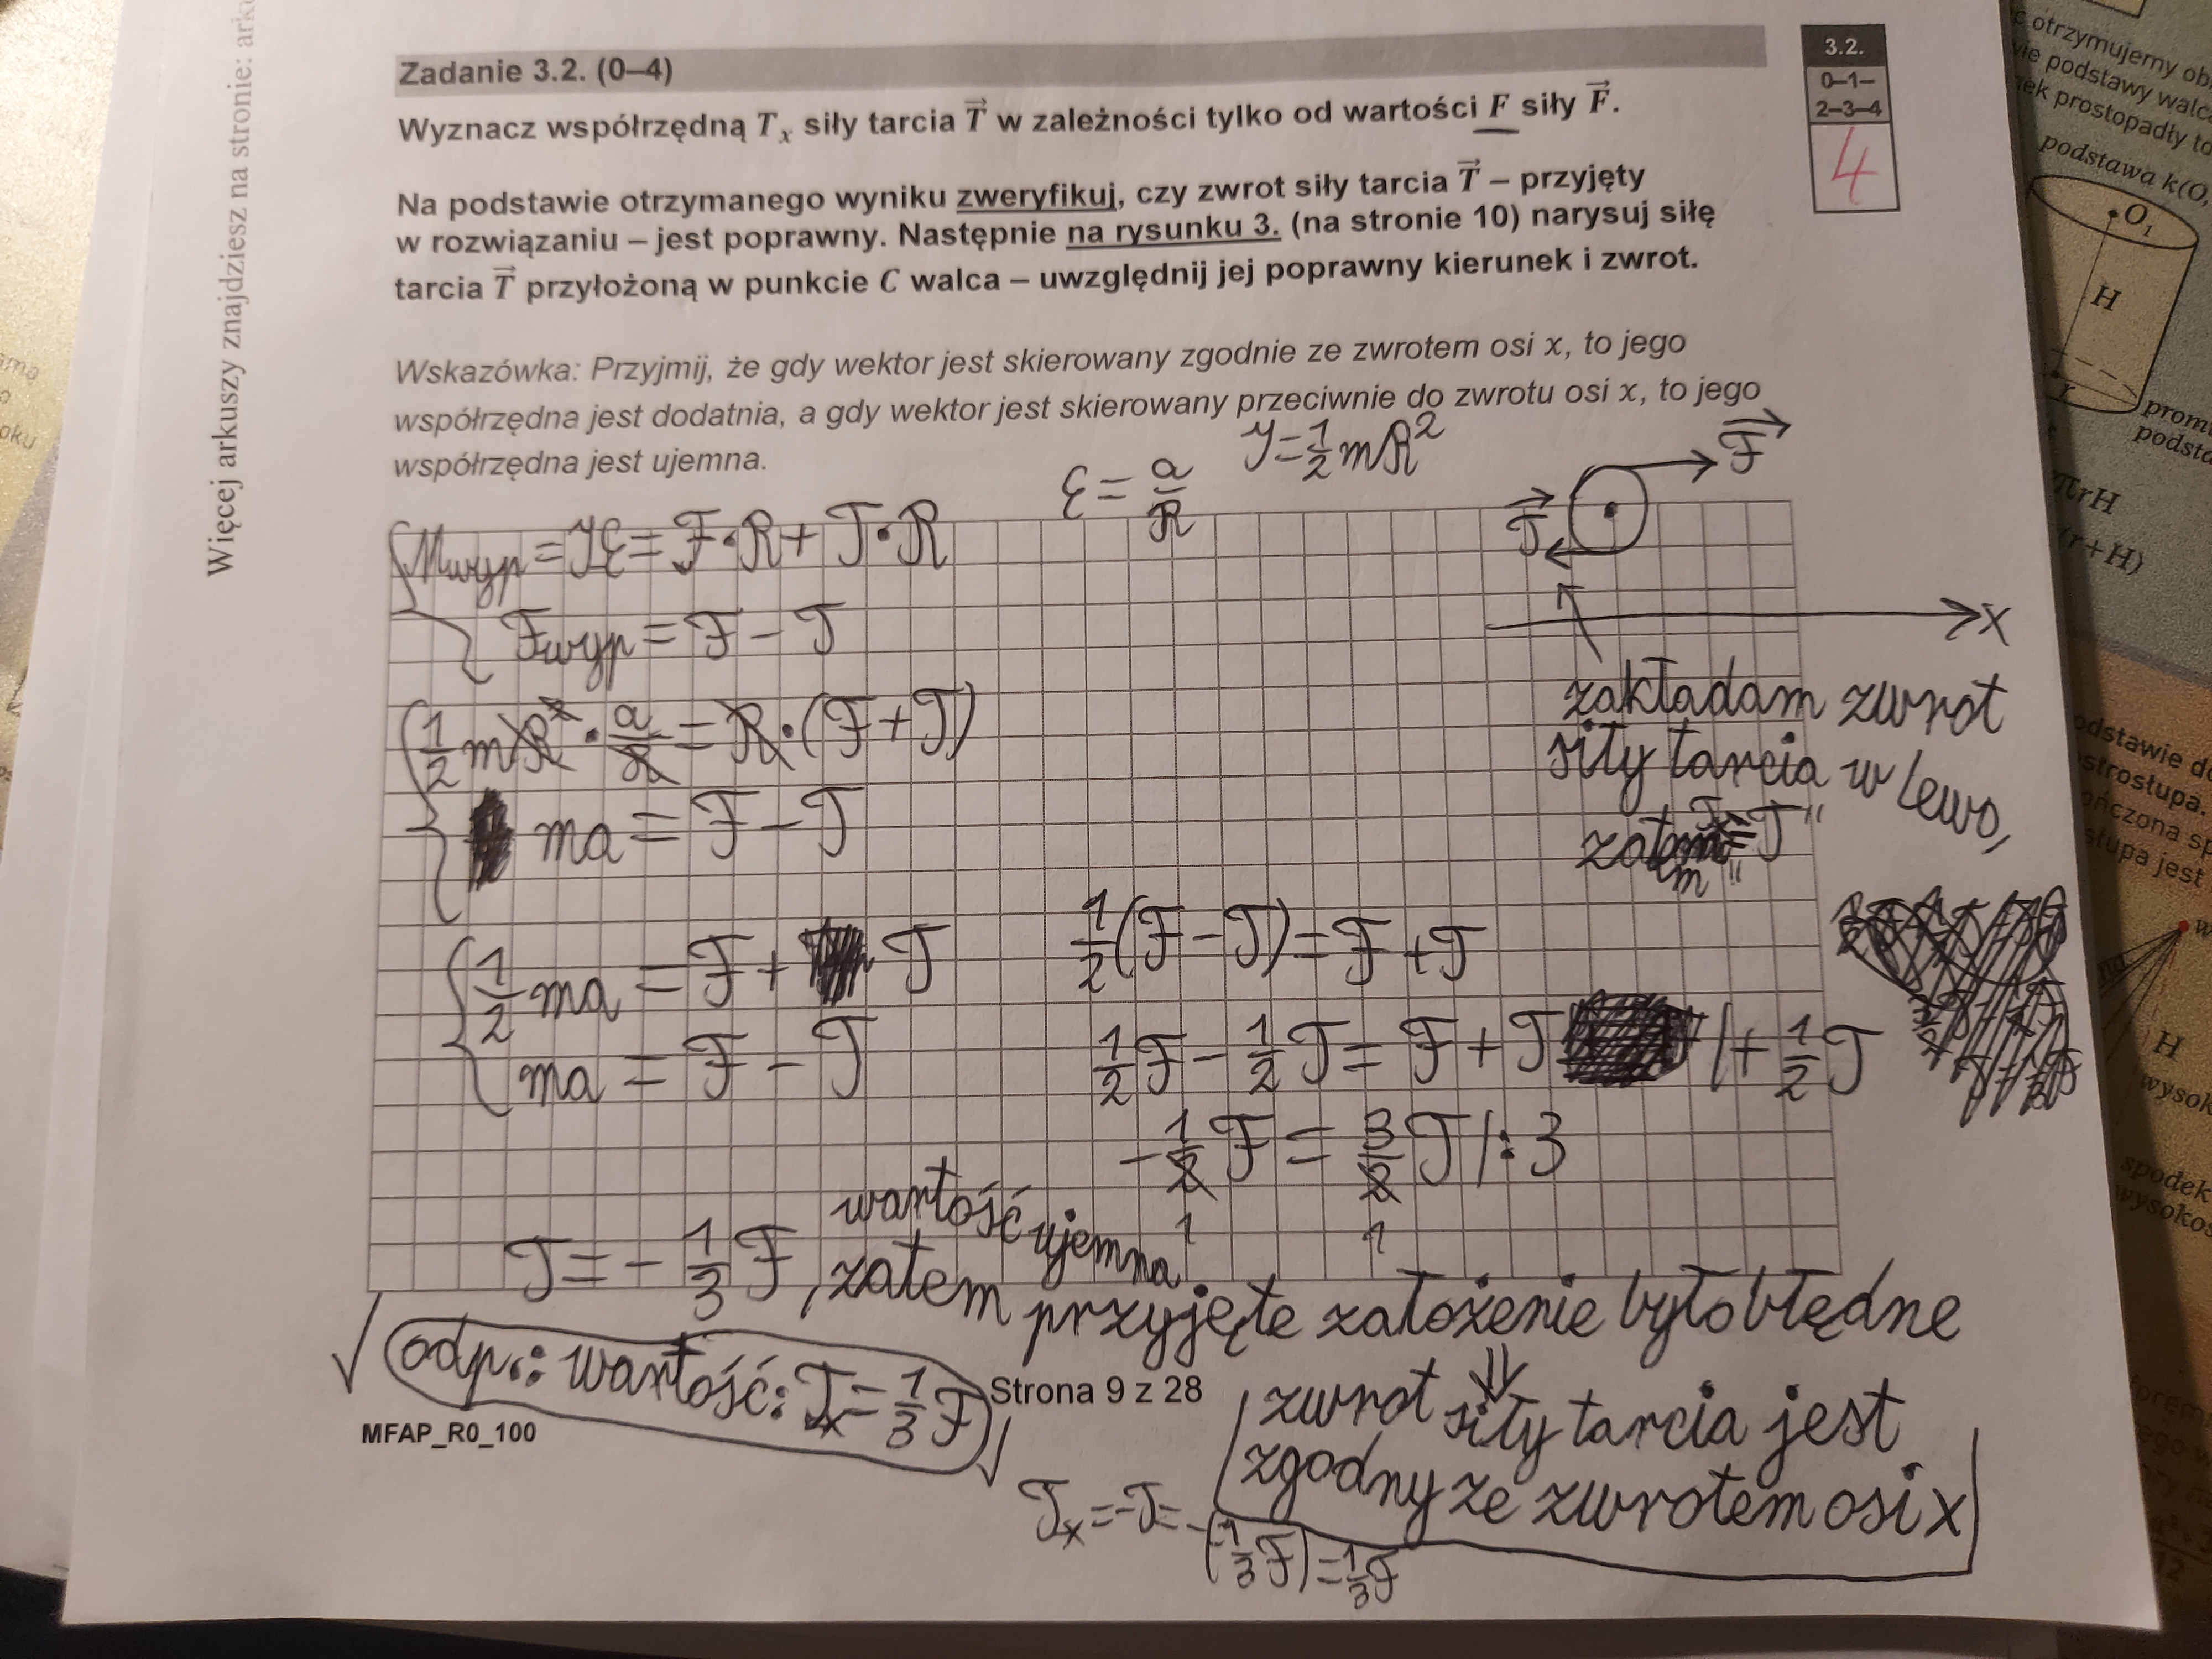 Więcej arkuszy znajdziesz na stronie: arku
Zadanie 3.2. (0–4)
3.2.
0–1–
2–3–4
4
Wyznacz współrzędną Tₓ siły tarcia T⃗ w zależności tylko od wartości F siły F⃗.
Na podstawie otrzymanego wyniku zweryfikuj, czy zwrot siły tarcia T⃗ – przyjęty
w rozwiązaniu – jest poprawny. Następnie na rysunku 3. (na stronie 10) narysuj siłę
tarcia T⃗ przyłożoną w punkcie C walca – uwzględnij jej poprawny kierunek i zwrot.
Wskazówka: Przyjmij, że gdy wektor jest skierowany zgodnie ze zwrotem osi x, to jego
współrzędna jest dodatnia, a gdy wektor jest skierowany przeciwnie do zwrotu osi x, to jego
współrzędna jest ujemna.
ε = a/R
y = 1/2 mR²
F⃗
T⃗
x
Mwyp = Iε = F·R + T·R
Fwyp = F − T
1/2 mR² · a/R = R·(F + T)
ma = F − T
zakładam zwrot
siły tarcia w lewo,
1/2 ma = F + T
ma = F − T
1/2(F − T) = F + T
1/2 F − 1/2 T = F + T |+ 1/2 T
−1/2 F = 3/2 T |: 3
1 1
T = − 1/3 F, wartość ujemna
zatem przyjęte założenie było błędne
⇓
odp.: wartość: Tₓ = 1/3 F
zwrot siły tarcia jest
zgodny ze zwrotem osi x
Strona 9 z 28
MFAP_R0_100
Tₓ = −T = −(−1/3 F) = 1/3 F
otrzymujemy
podstawy walca
prostopadły
podstawa k(O,
O₁
H
r
πrH
(r+H)
H
spodek